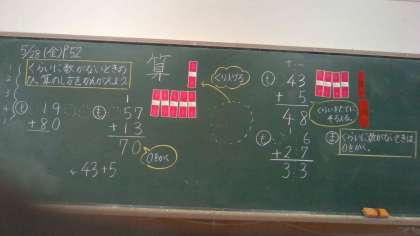 5/28(金)P52
くらいに数がないときの
た。算のしかたをかんがえよう
算
くり上げる
19
+80
1
57
+13
70
0をかく
43+5
43
+ 5
48
くらいをたてに
そろえる。
6
+27
33
くらいに数がないときは
0をかく。